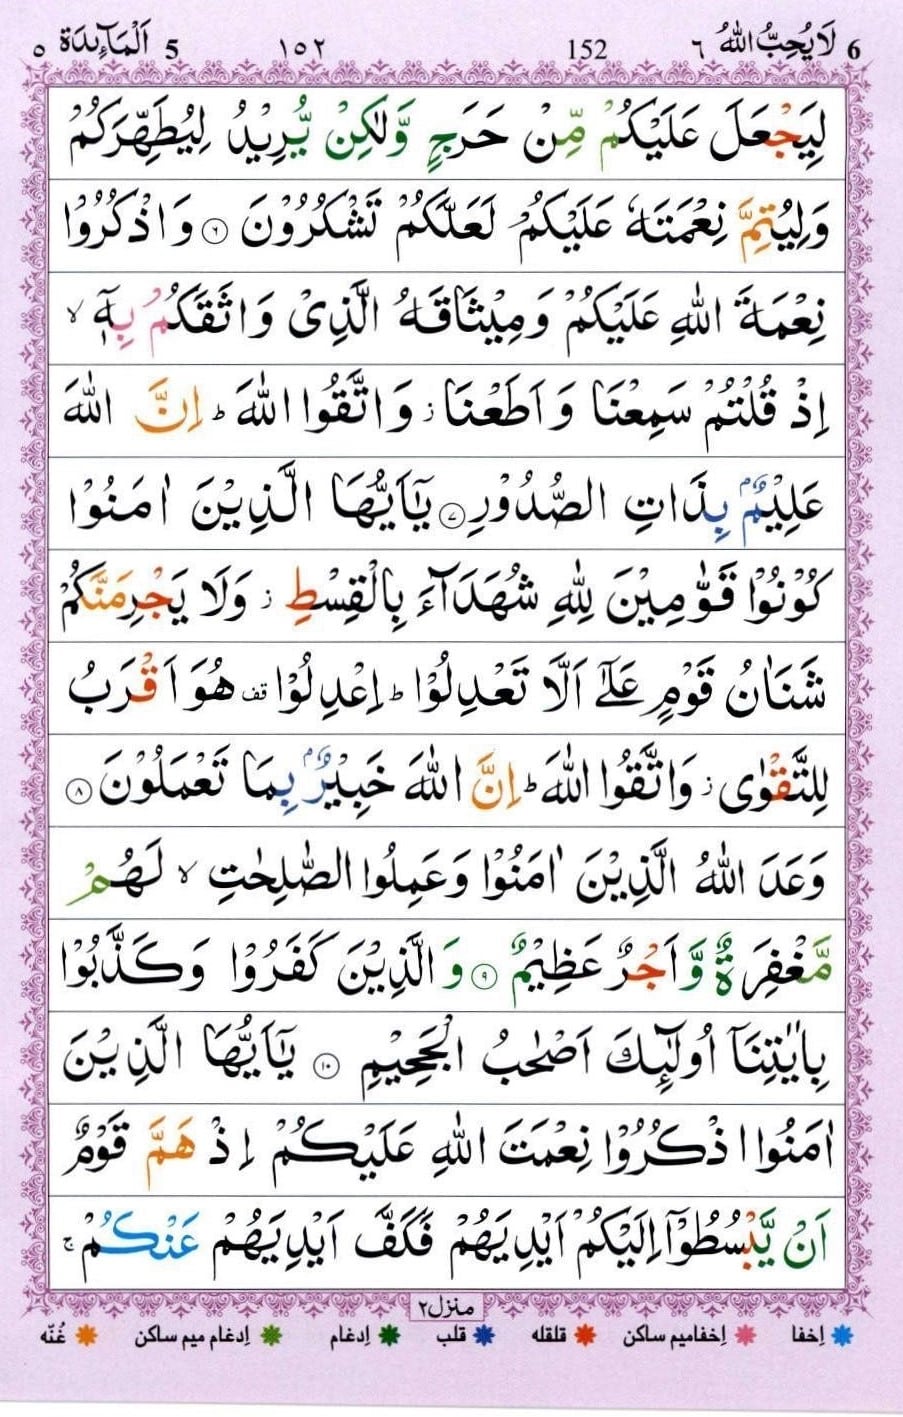 6 لَا يُحِبُّ اللهُ ٦ 152 ١٥٢ 5 اَلْمَآئِدَة ٥
لِيَجْعَلَ عَلَيْكُمْ مِّنْ حَرَجٍ وَّلٰكِنْ يُّرِيْدُ لِيُطَهِّرَكُمْ
وَلِيُتِمَّ نِعْمَتَهٗ عَلَيْكُمْ لَعَلَّكُمْ تَشْكُرُوْنَ ٦ وَاذْكُرُوْا
نِعْمَةَ اللهِ عَلَيْكُمْ وَمِيْثَاقَهُ الَّذِىْ وَاثَقَكُمْ بِهٖٓ ۙ
اِذْ قُلْتُمْ سَمِعْنَا وَاَطَعْنَا ز وَاتَّقُوا اللهَ ط اِنَّ اللهَ
عَلِيْمٌۢ بِذَاتِ الصُّدُوْرِ ٧ يٰٓاَيُّهَا الَّذِيْنَ اٰمَنُوْا
كُوْنُوْا قَوّٰمِيْنَ لِلّٰهِ شُهَدَآءَ بِالْقِسْطِ ز وَلَا يَجْرِمَنَّكُمْ
شَنَاٰنُ قَوْمٍ عَلٰٓى اَلَّا تَعْدِلُوْا ط اِعْدِلُوْا قف هُوَ اَقْرَبُ
لِلتَّقْوٰى ز وَاتَّقُوا اللهَ ط اِنَّ اللهَ خَبِيْرٌۢ بِمَا تَعْمَلُوْنَ ٨
وَعَدَ اللهُ الَّذِيْنَ اٰمَنُوْا وَعَمِلُوا الصّٰلِحٰتِ ۙ لَهُمْ
مَّغْفِرَةٌ وَّاَجْرٌ عَظِيْمٌ ٩ وَالَّذِيْنَ كَفَرُوْا وَكَذَّبُوْا
بِاٰيٰتِنَآ اُولٰٓئِكَ اَصْحٰبُ الْجَحِيْمِ ١٠ يٰٓاَيُّهَا الَّذِيْنَ
اٰمَنُوا اذْكُرُوْا نِعْمَتَ اللهِ عَلَيْكُمْ اِذْ هَمَّ قَوْمٌ
اَنْ يَّبْسُطُوْٓا اِلَيْكُمْ اَيْدِيَهُمْ فَكَفَّ اَيْدِيَهُمْ عَنْكُمْ ج
منزل٢
اِخفا اِخفامیم ساکن قلقله قلب اِدغام اِدغام میم ساکن غُنّه